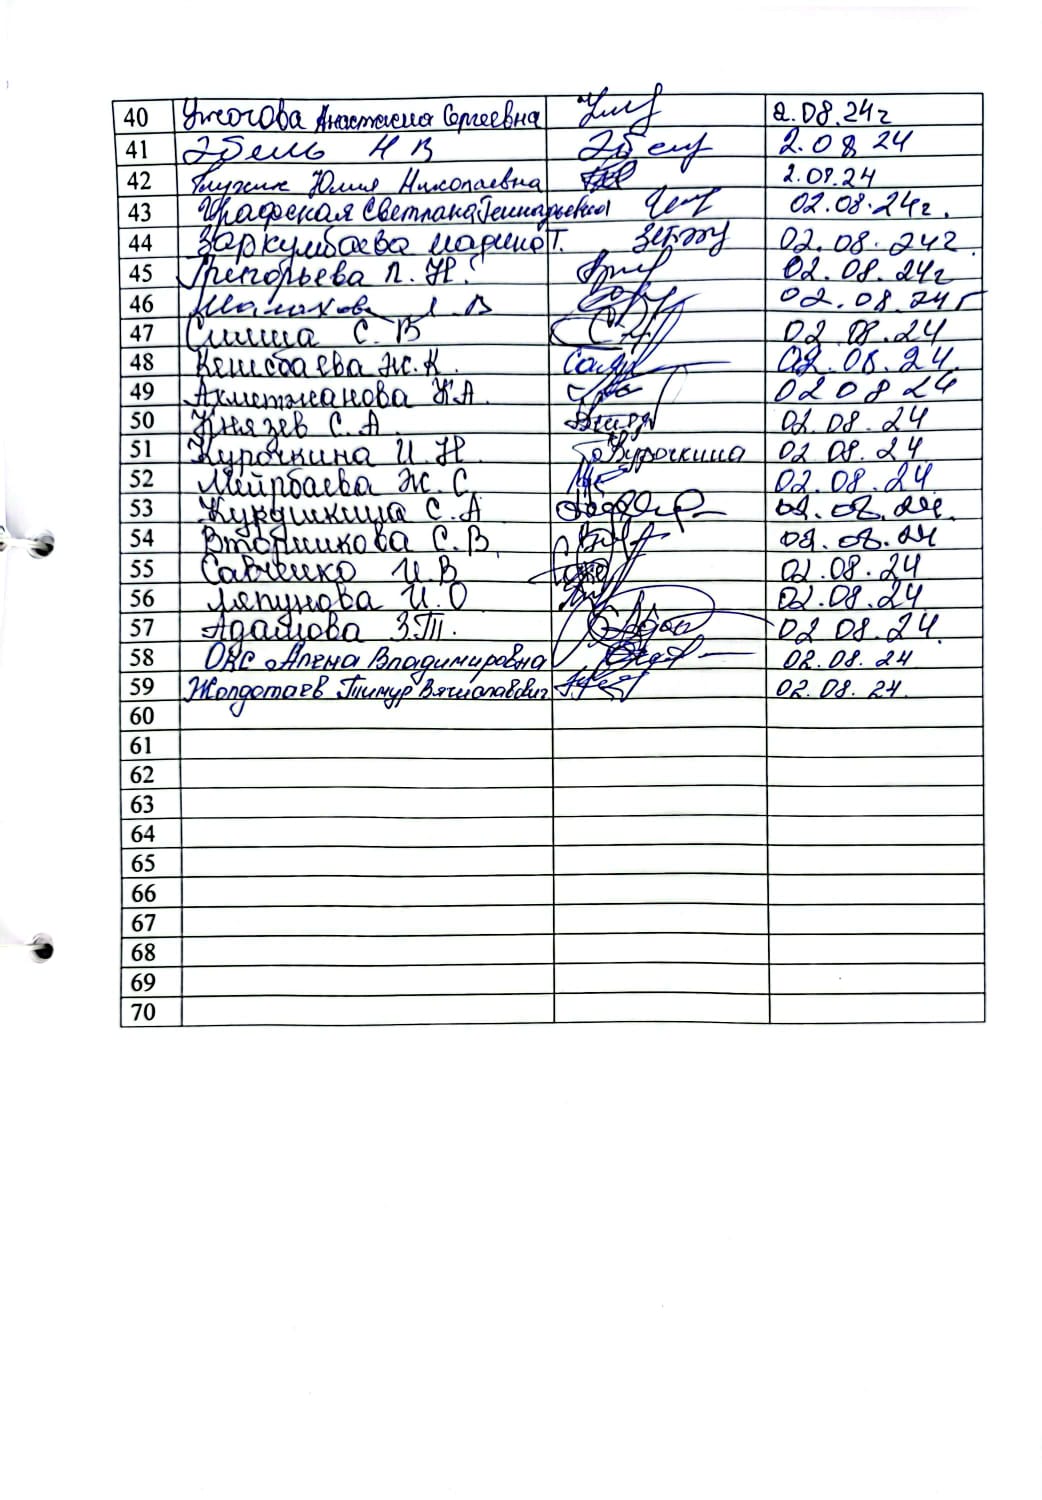 40 Ужогова Анастасия Сергеевна 2.08.24г
41 Эбель Н В Эбель 2.08 24
42 Глужик Юлия Николаевна 2.08.24
43 Графская Светлана Геннадьевна 02.08.24г.
44 Заркумбаева Мадина Т. 02.08.24г
45 Григорьева Л. Н. 02.08.24г
46 Малахова Л. В 02.08.24г
47 С. В 02.08.24
48 Кенсбаева Ж.К. 02.08.24
49 Ахметжанова К.А. 02 08 24
50 Князев С. А. 02.08.24
51 Курочкина И. Н. Курочкина 02.08.24
52 Мейрбаева Ж. С. 02.08.24
53 Кукушкина С. А 02.08.24.
54 Вторникова С.В. 02.08.24
55 Савченко И.В 02.08.24
56 Ляпунова И.О 02.08.24
57 Адамова З.Т. 02.08.24.
58 Окс Алена Владимировна 02.08.24
59 Жолдотаев Тимур Вячеславович 02.08.24.
60
61
62
63
64
65
66
67
68
69
70